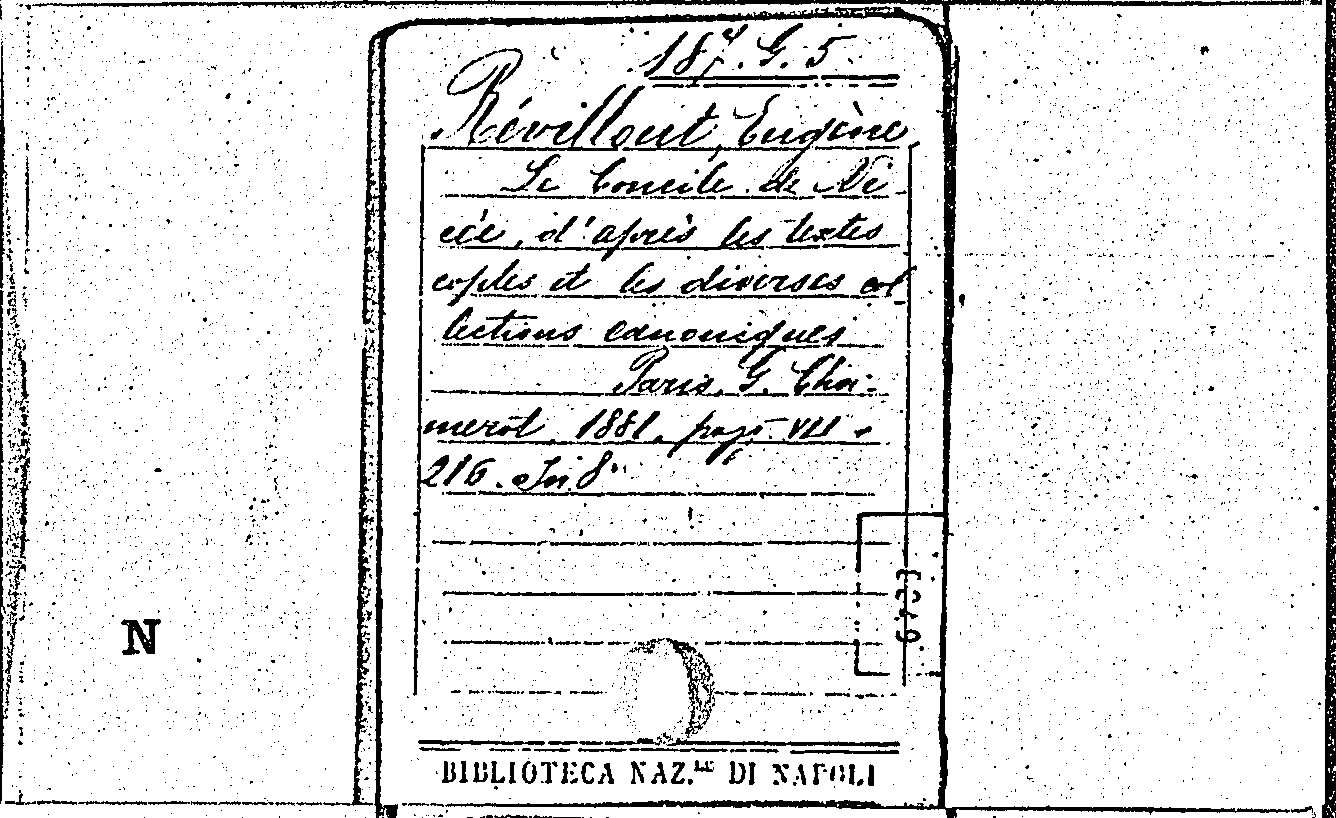 18⁴. G. 5
Révillout, Eugène
Le Concile de Ni-
cée, d'après les textes
coptes et les diverses col
lections canoniques
Paris, G. Cha-
merot, 1881, pag. VII -
216. In 8°
N
BIBLIOTECA NAZ.LE DI NAPOLI